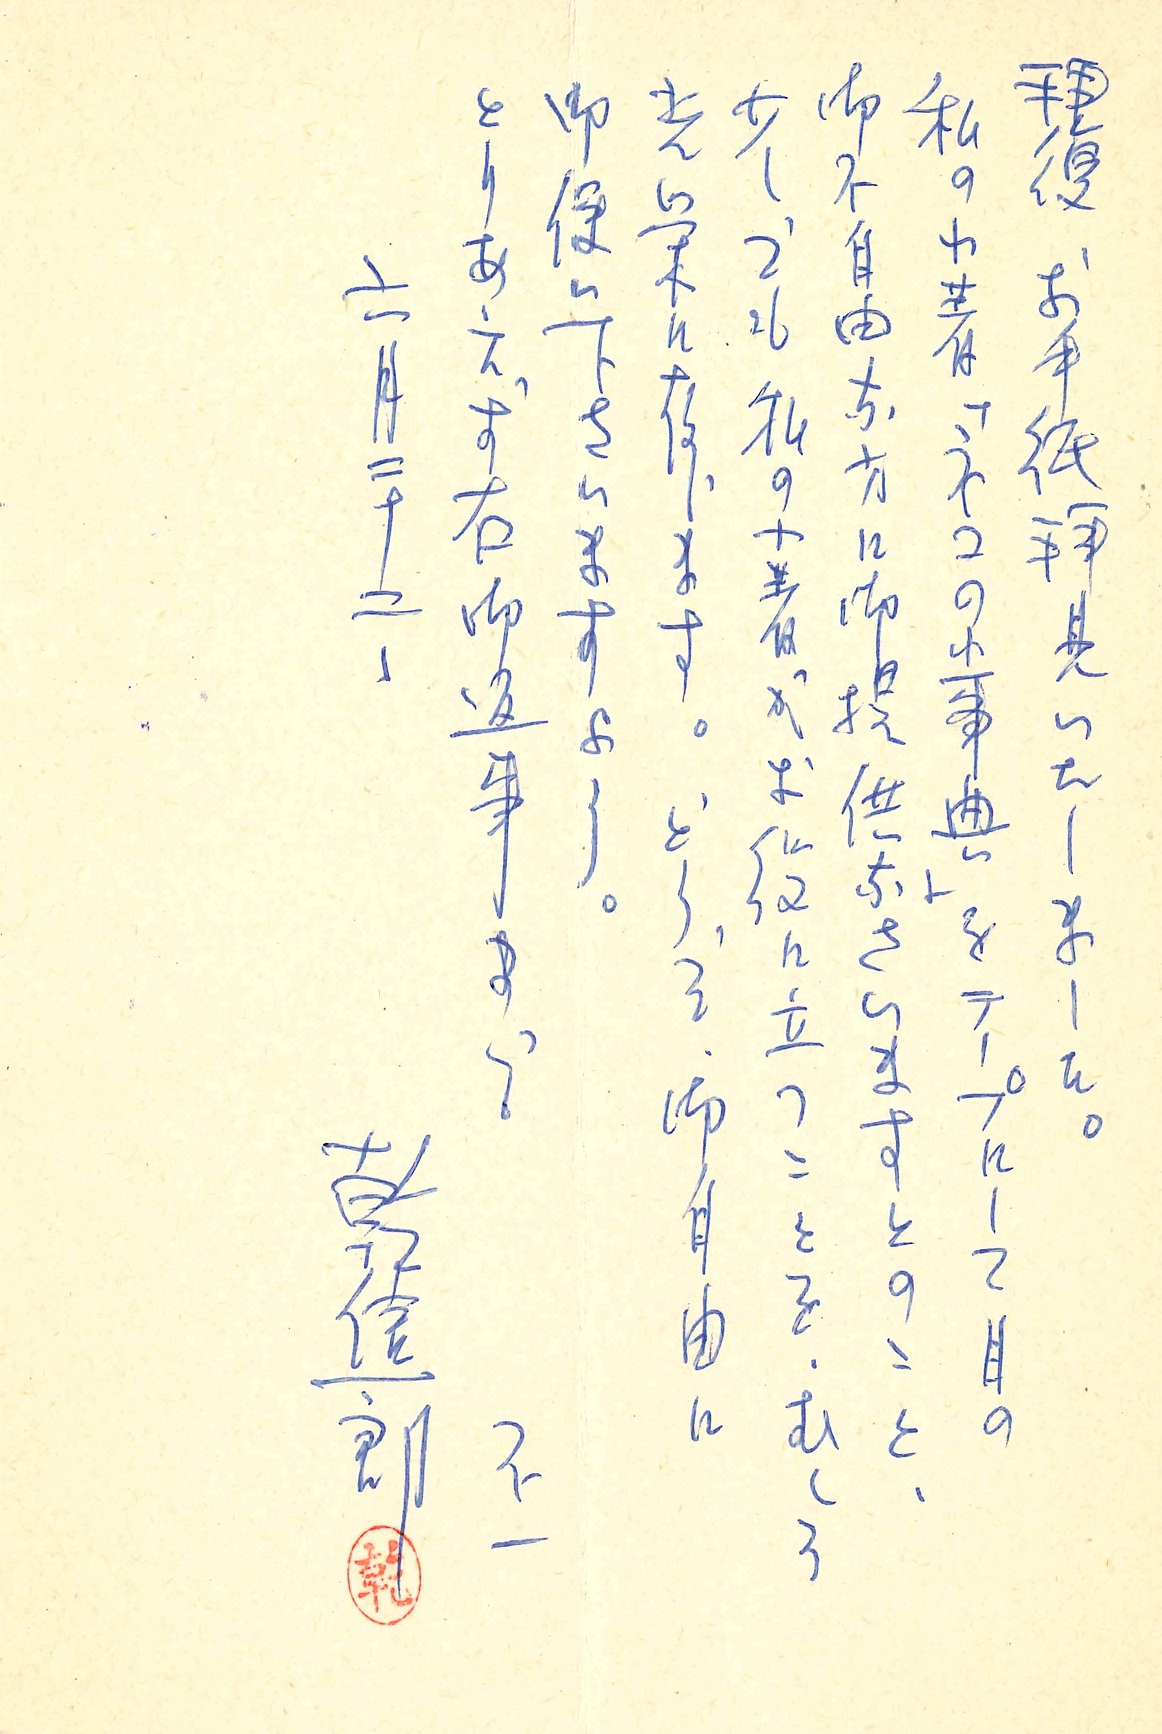 拝復 お手紙拝見いたしました。
私の小著「ネコの小事典」をテープにして目の
御不自由な方に御提供なさいますとのこと、
少しでも私の小著がお役に立つことを、むしろ
光栄に存じます。どうぞ、御自由に
御使い下さいますよう。
とりあえず右御返事まで。
不一
六月二十二
信郎
乾